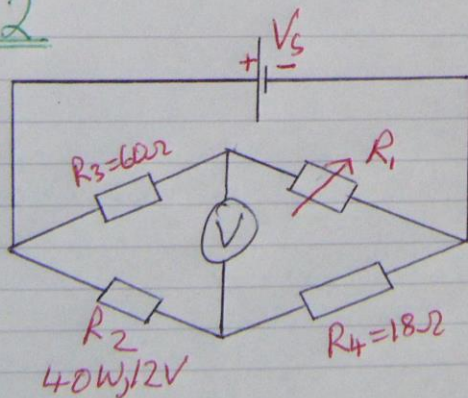 2
Vs
+ -
R3=60Ω
R1
V
R2
40W,12V
R4=18Ω